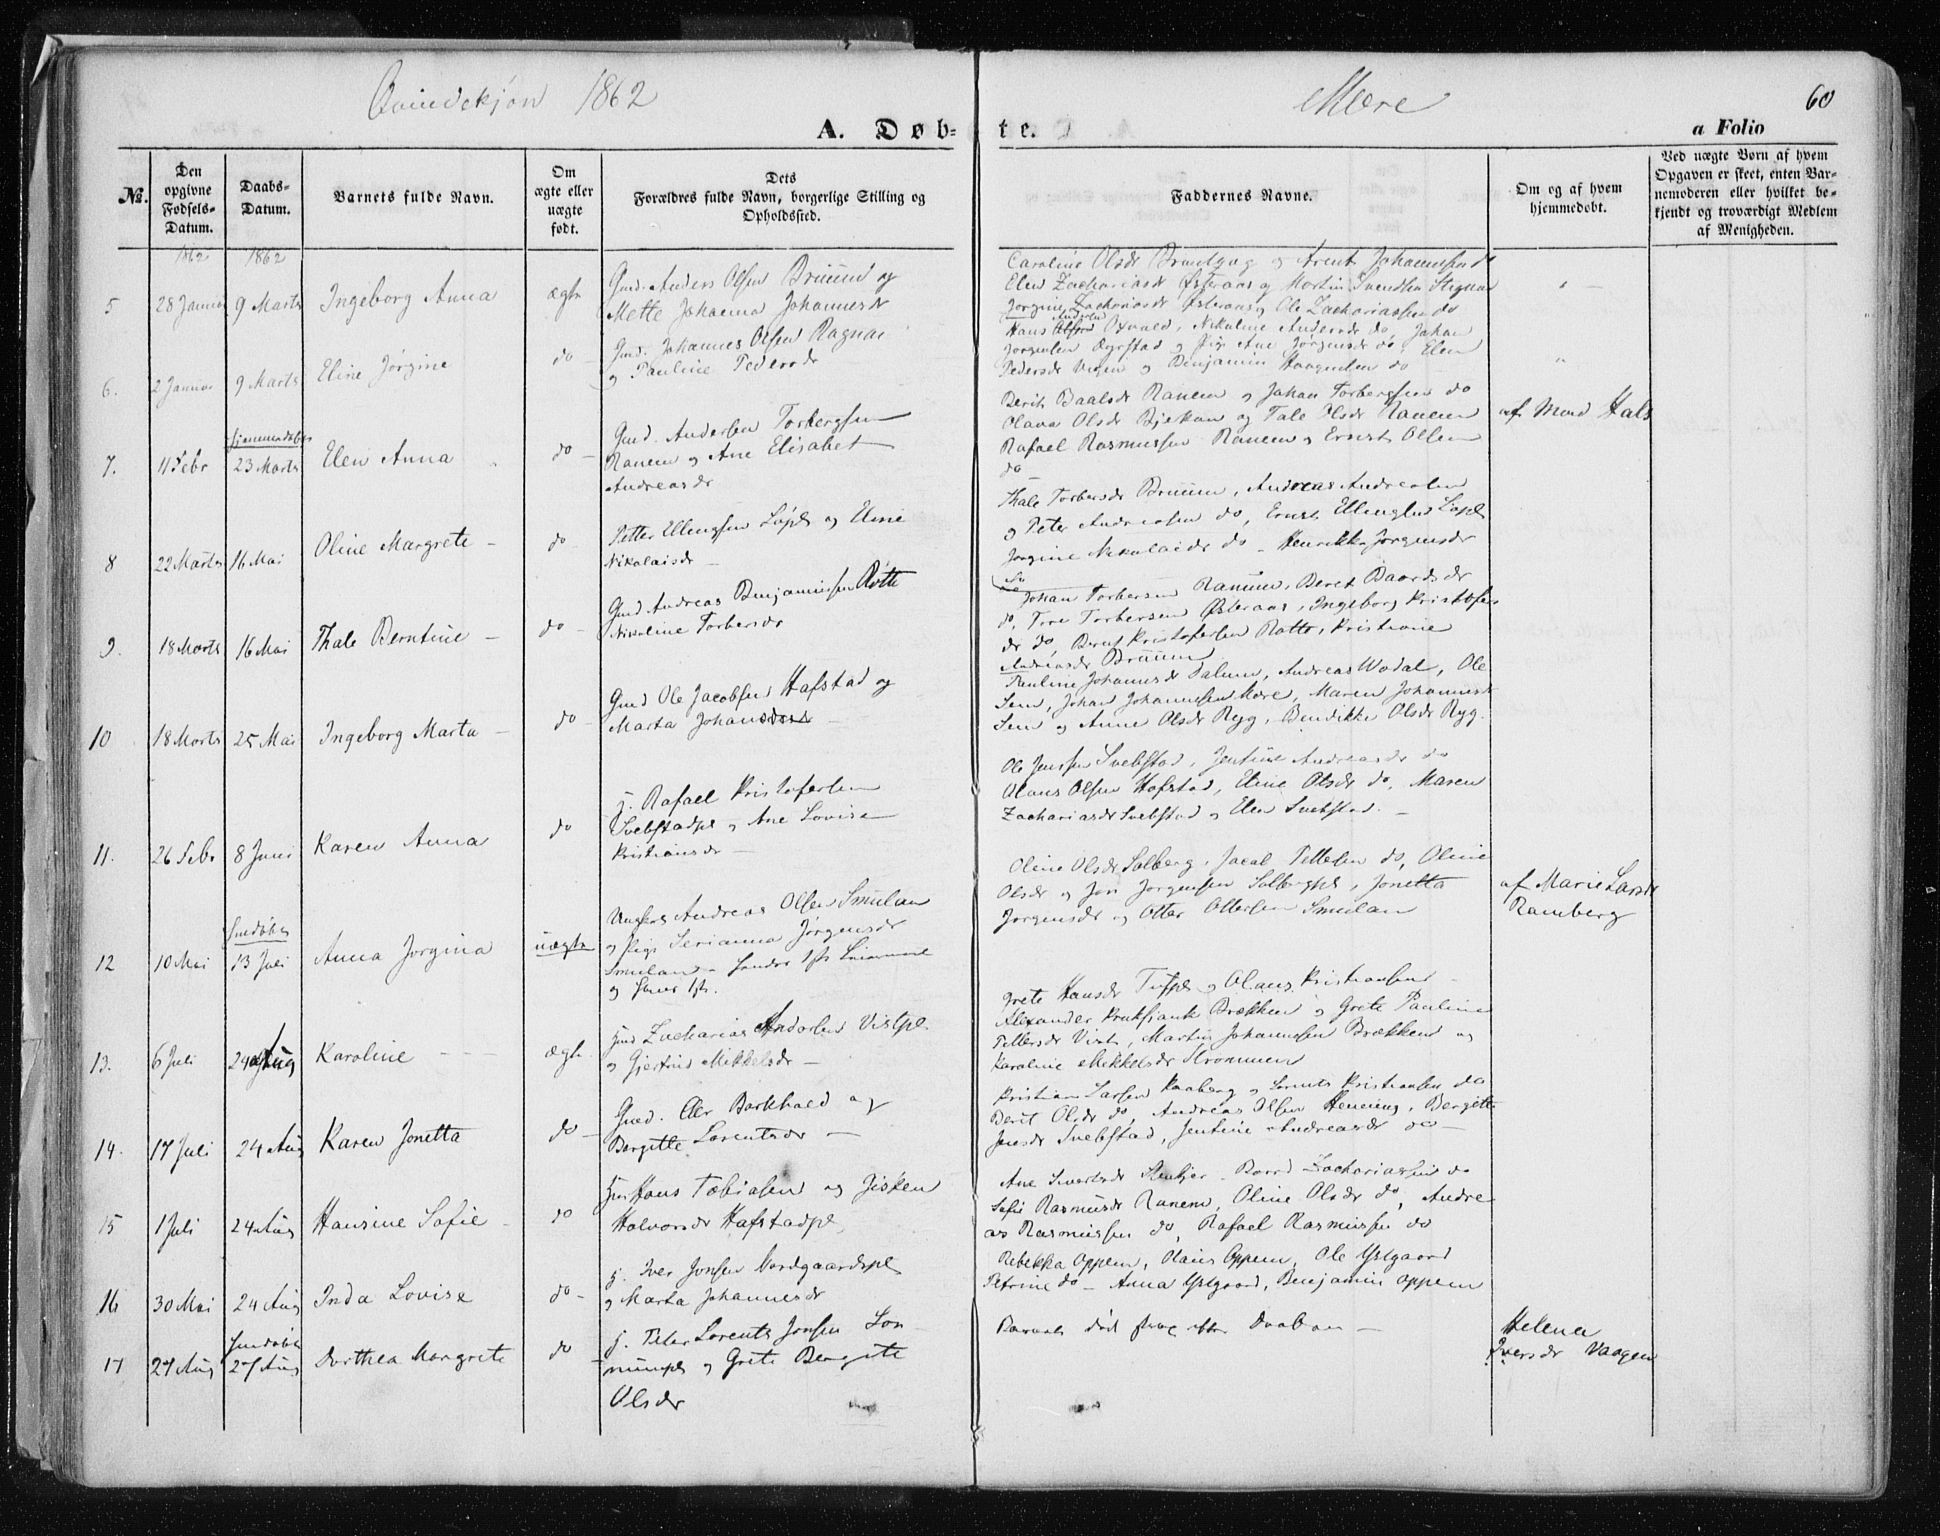 Qvindekjøn 1862
Mære
60
A. Døb-
te.
a Folio
No.
Den opgivne Fødsels-Datum.
Daabs-Datum.
Barnets fulde Navn.
Om ægte eller uægte født.
Dets Forældres fulde Navn, borgerlige Stilling og Opholdssted.
Faddernes Navne.
Om og af hvem hjemmedøbt.
Ved uægte Børn af hvem Opgaven er skeet, enten Barnemoderen eller hvilket bekjendt og troværdigt Medlem af Menigheden.
1862 1862
5 28 Januar 9 Marts Ingeborg Anna ægte
Gmd. Anders Olsen Bruum og
Mette Johanna Johannesdr
Caroline Olsdr og Arent Johannesen do
Elen Zachariasdr Østeraas og Martin Svendsen
Jørgine Zachariasdr Østeraas og Ole Zachariassen do
6. 2 Januar 9 Marts Eline Jørgine do
Gmd. Johannes Olsen Ragnas
og Pauline Pedersdr
Hans Andersen Oxvald, Nikoline Andersdr do, Johan
Jørgensen og Pige Ane Jørgensdr do, Elen
Pedersdr og Benjamin Haagensen do
7. 11 Febr hjemmedøbt 23 Marts Elen Anna do
Gmd. Andersen Torbergsen
Ranem og Ane Elisabet
Andreasdr
Berit Baalsdr Ranem og Johan Torbergsen do
Olava Olsdr Bjekan og Tale Olsdr Ranem
Rafael Rasmussen Ranem og Ernst Olsen
do
af Hals
8 22 Marts 16 Mai Oline Margrete do
Petter Ellingsen og Eline
Nikolaisdr
Thale Torbersdr Bruum, Andreas Andreasen
og Peter Andreasen do, Ernst Ellingsen
Jørgine Nikolaidr do Henrikka Jørgensdr
do
9. 18 Marts 16 Mai Thale Berntine do
Gmd Andreas Benjaminsen Rotte
Nikoline Torbersdr
Johan Torbersen Ranum, Beret Baardsdr
do, Tore Torbersen Østeraas, Ingeborg Kristofers
dr do, Bernt Kristofersen Rotte, Kristiane
Andreasdr Bruum
10 18 Marts 25 Mai Ingeborg Marta do
Gmd Ole Jacobsen Hafstad og
Marta Johansdr
Pauline Johanesdr Dalum, Andreas Wodal, Ole
Sem, Johan Johannesen Mære, Maren Johannesdr
Sem og Anne Olsdr Ryg, Bendikke Olsdr Ryg.
11. 26 Febr 8 Juni Karen Anna do
j. Rafael Kristofersen
Svebstadpl og Ane Lovise
Kristiansdr
Ole Jenssen Svebstad, Jentine Andreasdr do
Olaus Olsen Hofstad, Eline Olsdr do, Maren
Zachariasdr Svebstad og Elen Svebstad
12 10 Mai hmdøbt 13 Juli Anna Jørgina uægte
Ungkarl Andreas Olsen Smulan
og Pige Serianna Jørgensdr
Smulan
Oline Olsdr Solberg, Jacob Pettersen do, Oline
Olsdr og Jøn Jørgensen Solbergpl, Jonetta
Jørgensdr og Otter Ottersen Smulan
af Marie Larsdr
Ramberg
13. 6 Juli 24 Aug Karoline ægte
Zacharias Andersen Vistpl
og Gjertrud Mikkelsdr
Grete Hansdr og Olaus Kristiansen
Alexander Brækken og Grete Pauline
Pettersdr Vist, Martin Johannesen Brækken og
Karoline Mikkelsdr Strommen
14. 17 Juli 24 Aug Karen Jonetta do
Gmd. Barkhald og
Bergitte Lorentsdr
Kristian Larsen og Lorents Kristiansen do
Berit Olsdr do, Andreas Olsen Henning, Bergitte
Jensdr Svebstad, Jentine Andreasdr do
15 1 Juli 24 Aug Hansine Sofie do
Hans Tobiasen og Gisken
Halvorsdr Hafstadpl
Ane Sivertsdr Stenkjer Baard Zachariassen do
Sofie Rasmusdr Ranem, Oline Olsdr do, Andre
as Rasmussen do, Rafael Rasmussen do
16 30 Mai 24 Aug Inda Lovise do
j. Iver Jonsen Nordgaardspl
og Marta Johannesdr
Rebekka Oppem, Olaus Oppem, Ole Ystgaard
Petrine do Anna Ystgaard, Benjamin Oppem
17 27 Aug hmdøbt 27 Aug Dorthea Margrete do
j. Peter Lorents Jonsen
og Grete Bergitte
Olsdr
Barnet død strax efter Daaben
Helena
Iversdr Vaagen